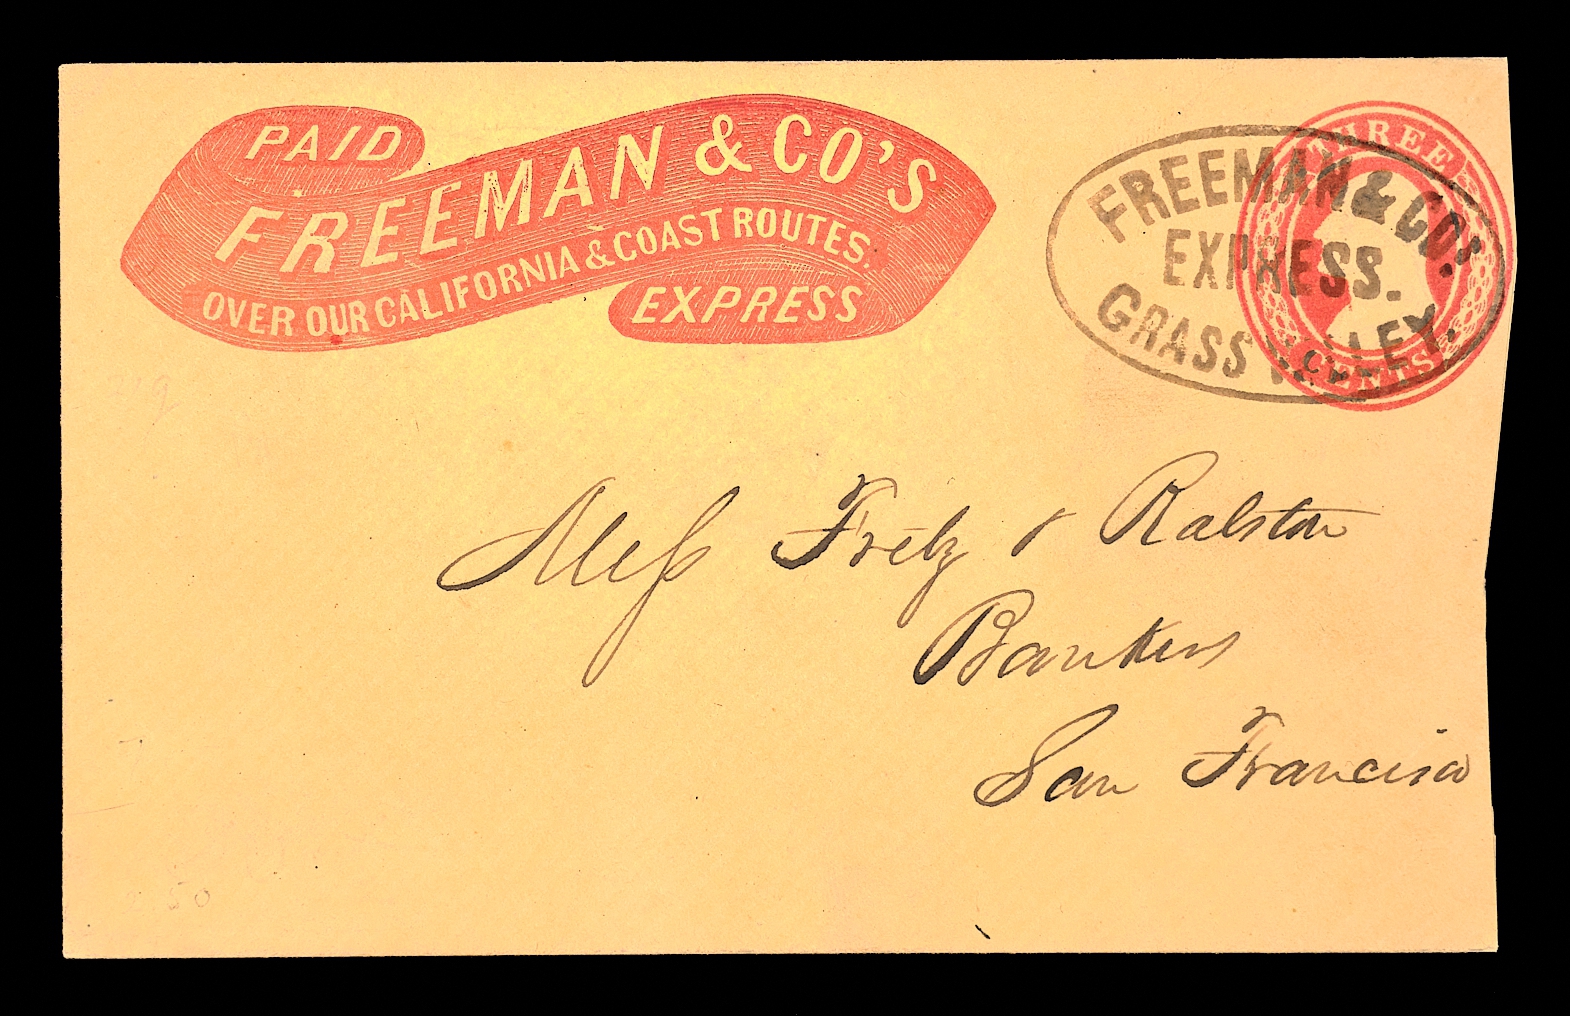 PAID
FREEMAN & CO'S
OVER OUR CALIFORNIA & COAST ROUTES.
EXPRESS
THREE
CENTS
FREEMAN & CO'S.
EXPRESS.
GRASS VALLEY.
Mess Fretz & Ralston
Bankers
San Francisco
2.50